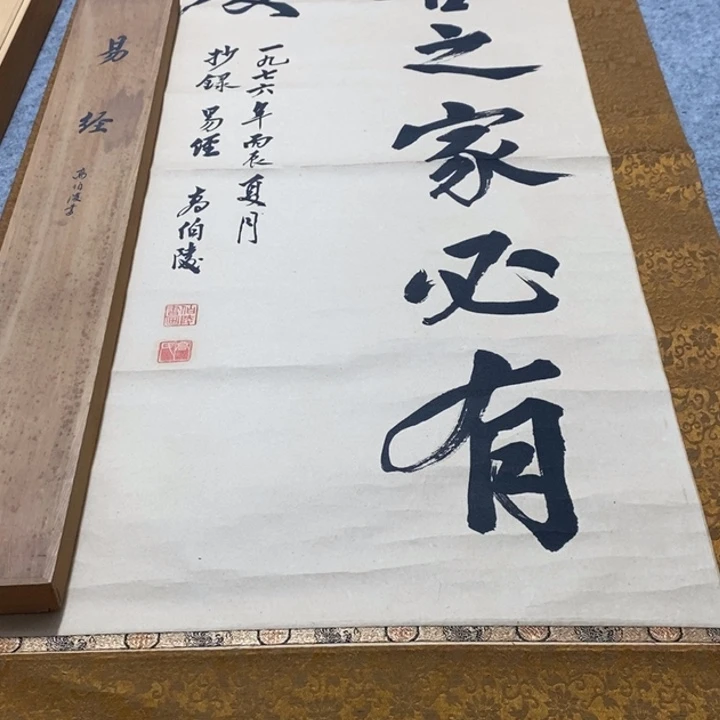 之家必有
一九七六年丙辰夏月
抄録易经
高伯陵
易经
高伯陵書